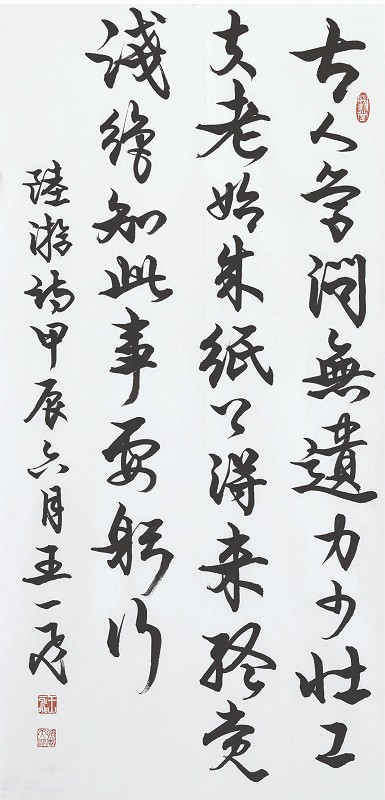 古人學問無遺力少壯工
夫老始成紙上得来終覺
淺絕知此事要躬行
陸游詩甲辰六月王一